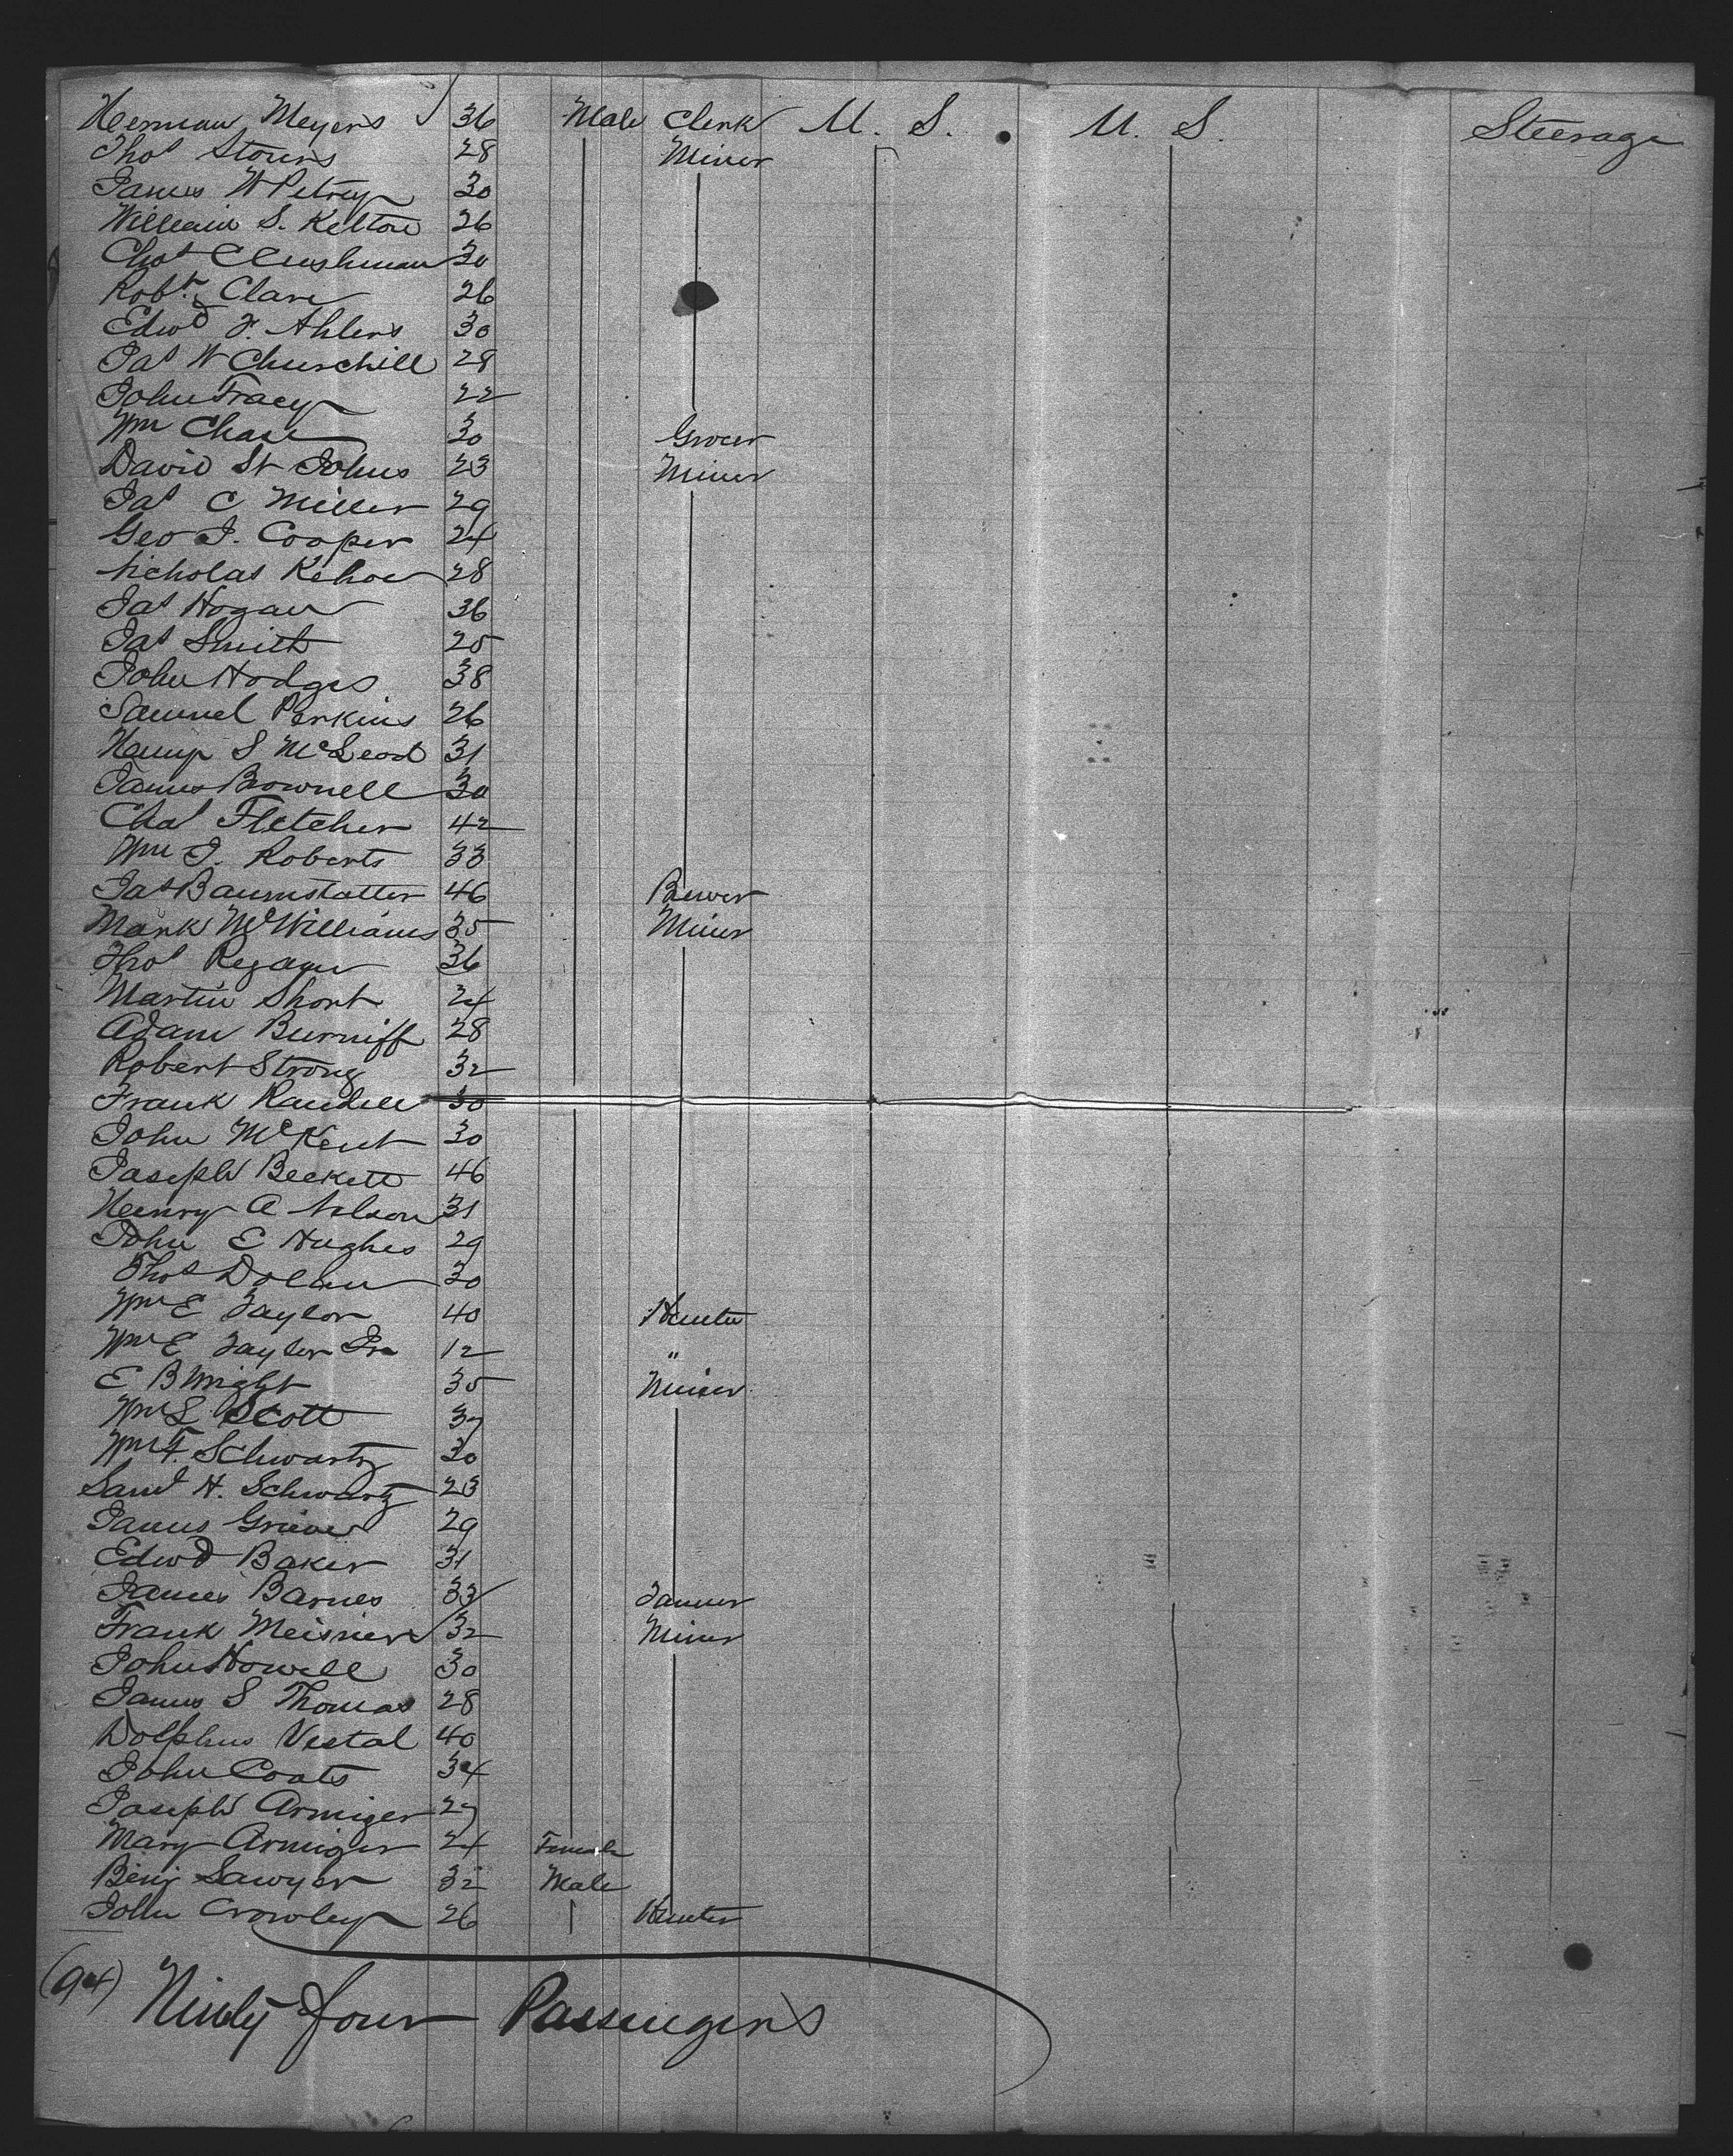 Herman Meyers 36 Male Clerk U. S. U. S. Steerage
Thos 28 Miner
James W Petray 30
William S. Kelton 26
Chas C Cushman 30
Robt. Clare 26
Edwd F. Ahlers 30
Jas W Churchill 28
John Tracy 22
Wm Chase 30 Grocer
David St Johns 23 Miner
Jas C Miller 29
Geo J. Cooper 24
Nicholas Kehoe 28
Jas Hogan 36
Jas Smith 25
John Hodges 38
Samuel Perkins 26
Hamp S McLeod 31
James Brownell 30
Chas Fletcher 42
Wm J. Roberts 33
Jas Baumstatter 46 Brewer
Mark McWilliams 35 Miner
Thos Regan 36
Martin Short 24
Adam Burniff 28
Robert Strong 32
Frank Randell 30
John McKent 30
Joseph Beckett 46
Henry A Nelson 31
John E Hughes 29
Thos Dolan 30
Wm E Taylor 40 Hunter
Wm E Taylor Jr 12 "
E B Wright 35 Miner
Wm L Scott 37
Wm F. Schwartz 30
Saml H. Schwartz 23
James Grieve 29
Edwd Baker 31
James Barnes 33 Tanner
Frank Meisner 32 Miner
John Howell 30
James S Thomas 28
Dolphus Vestal 40
John Coats 34
Joseph Armiger 27
Mary Armiger 24 Female
Benj Sawyer 32 Male
John Crowley 26 Hunter
(94) Ninty four Passengers